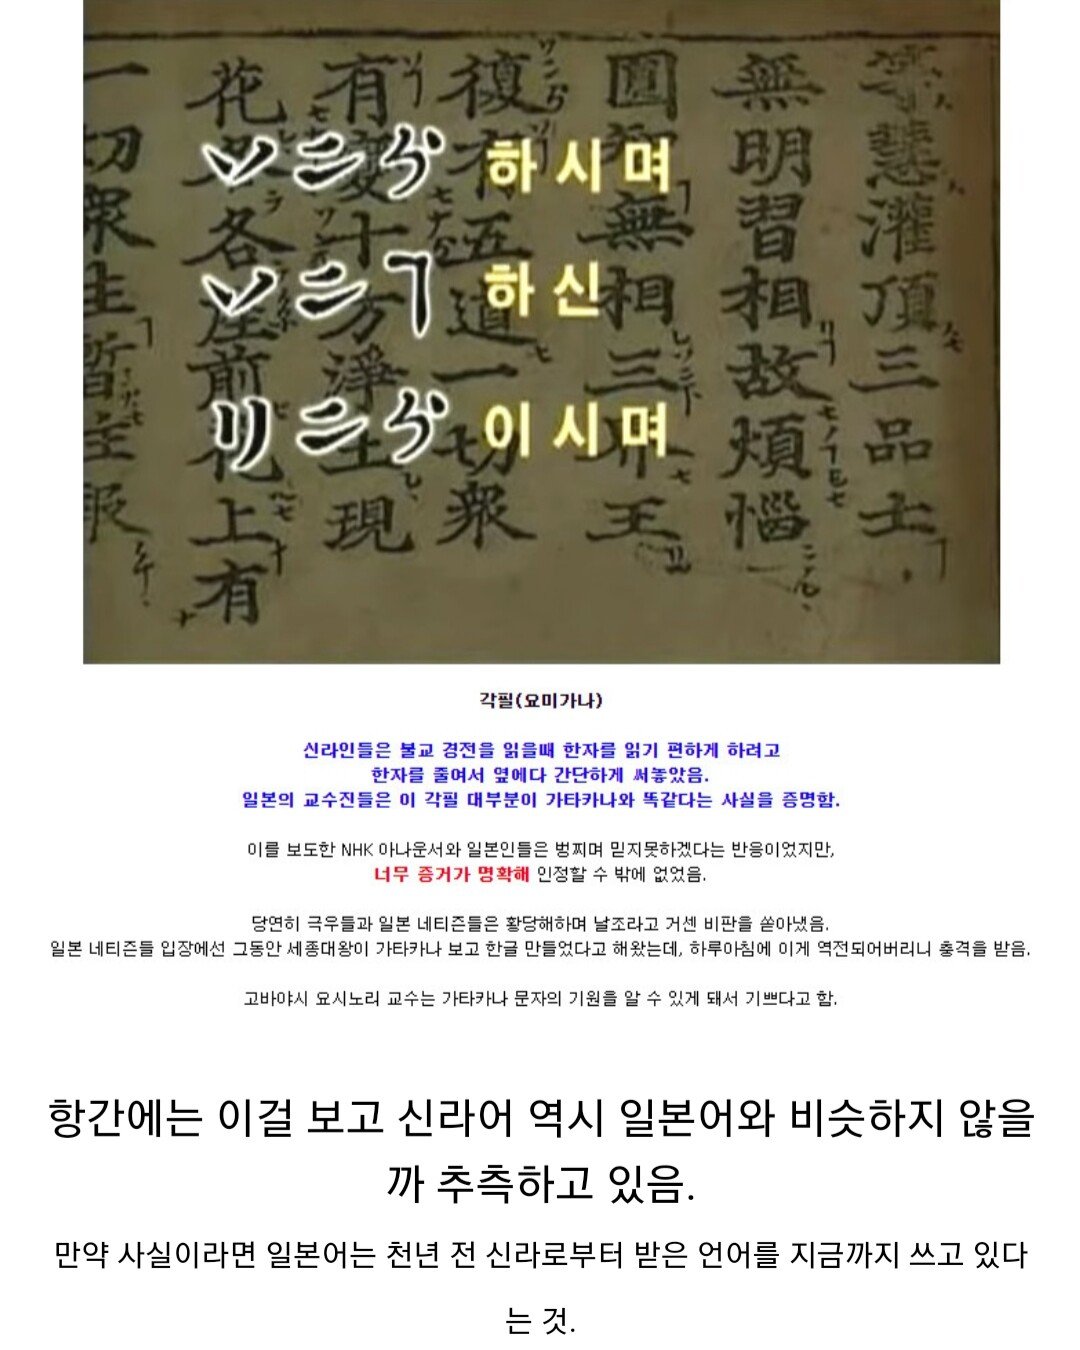 慧灌頂三品士
無明習相故煩惱
圓 無相三 王
復 五道一切衆
有 十方淨土現
花 各座前 上有
一切衆生
하시며
하신
이시며
각필(요미가나)
신라인들은 불교 경전을 읽을때 한자를 읽기 편하게 하려고
한자를 줄여서 옆에다 간단하게 써놓았음.
일본의 교수진들은 이 각필 대부분이 가타카나와 똑같다는 사실을 증명함.
이를 보도한 NHK 아나운서와 일본인들은 벙찌며 믿지못하겠다는 반응이었지만,
너무 증거가 명확해 인정할 수 밖에 없었음.
당연히 극우들과 일본 네티즌들은 황당해하며 날조라고 거센 비판을 쏟아냈음.
일본 네티즌들 입장에선 그동안 세종대왕이 가타카나 보고 한글 만들었다고 해왔는데, 하루아침에 이게 역전되어버리니 충격을 받음.
고바야시 요시노리 교수는 가타카나 문자의 기원을 알 수 있게 돼서 기쁘다고 함.
항간에는 이걸 보고 신라어 역시 일본어와 비슷하지 않을
까 추측하고 있음.
만약 사실이라면 일본어는 천년 전 신라로부터 받은 언어를 지금까지 쓰고 있다
는 것.